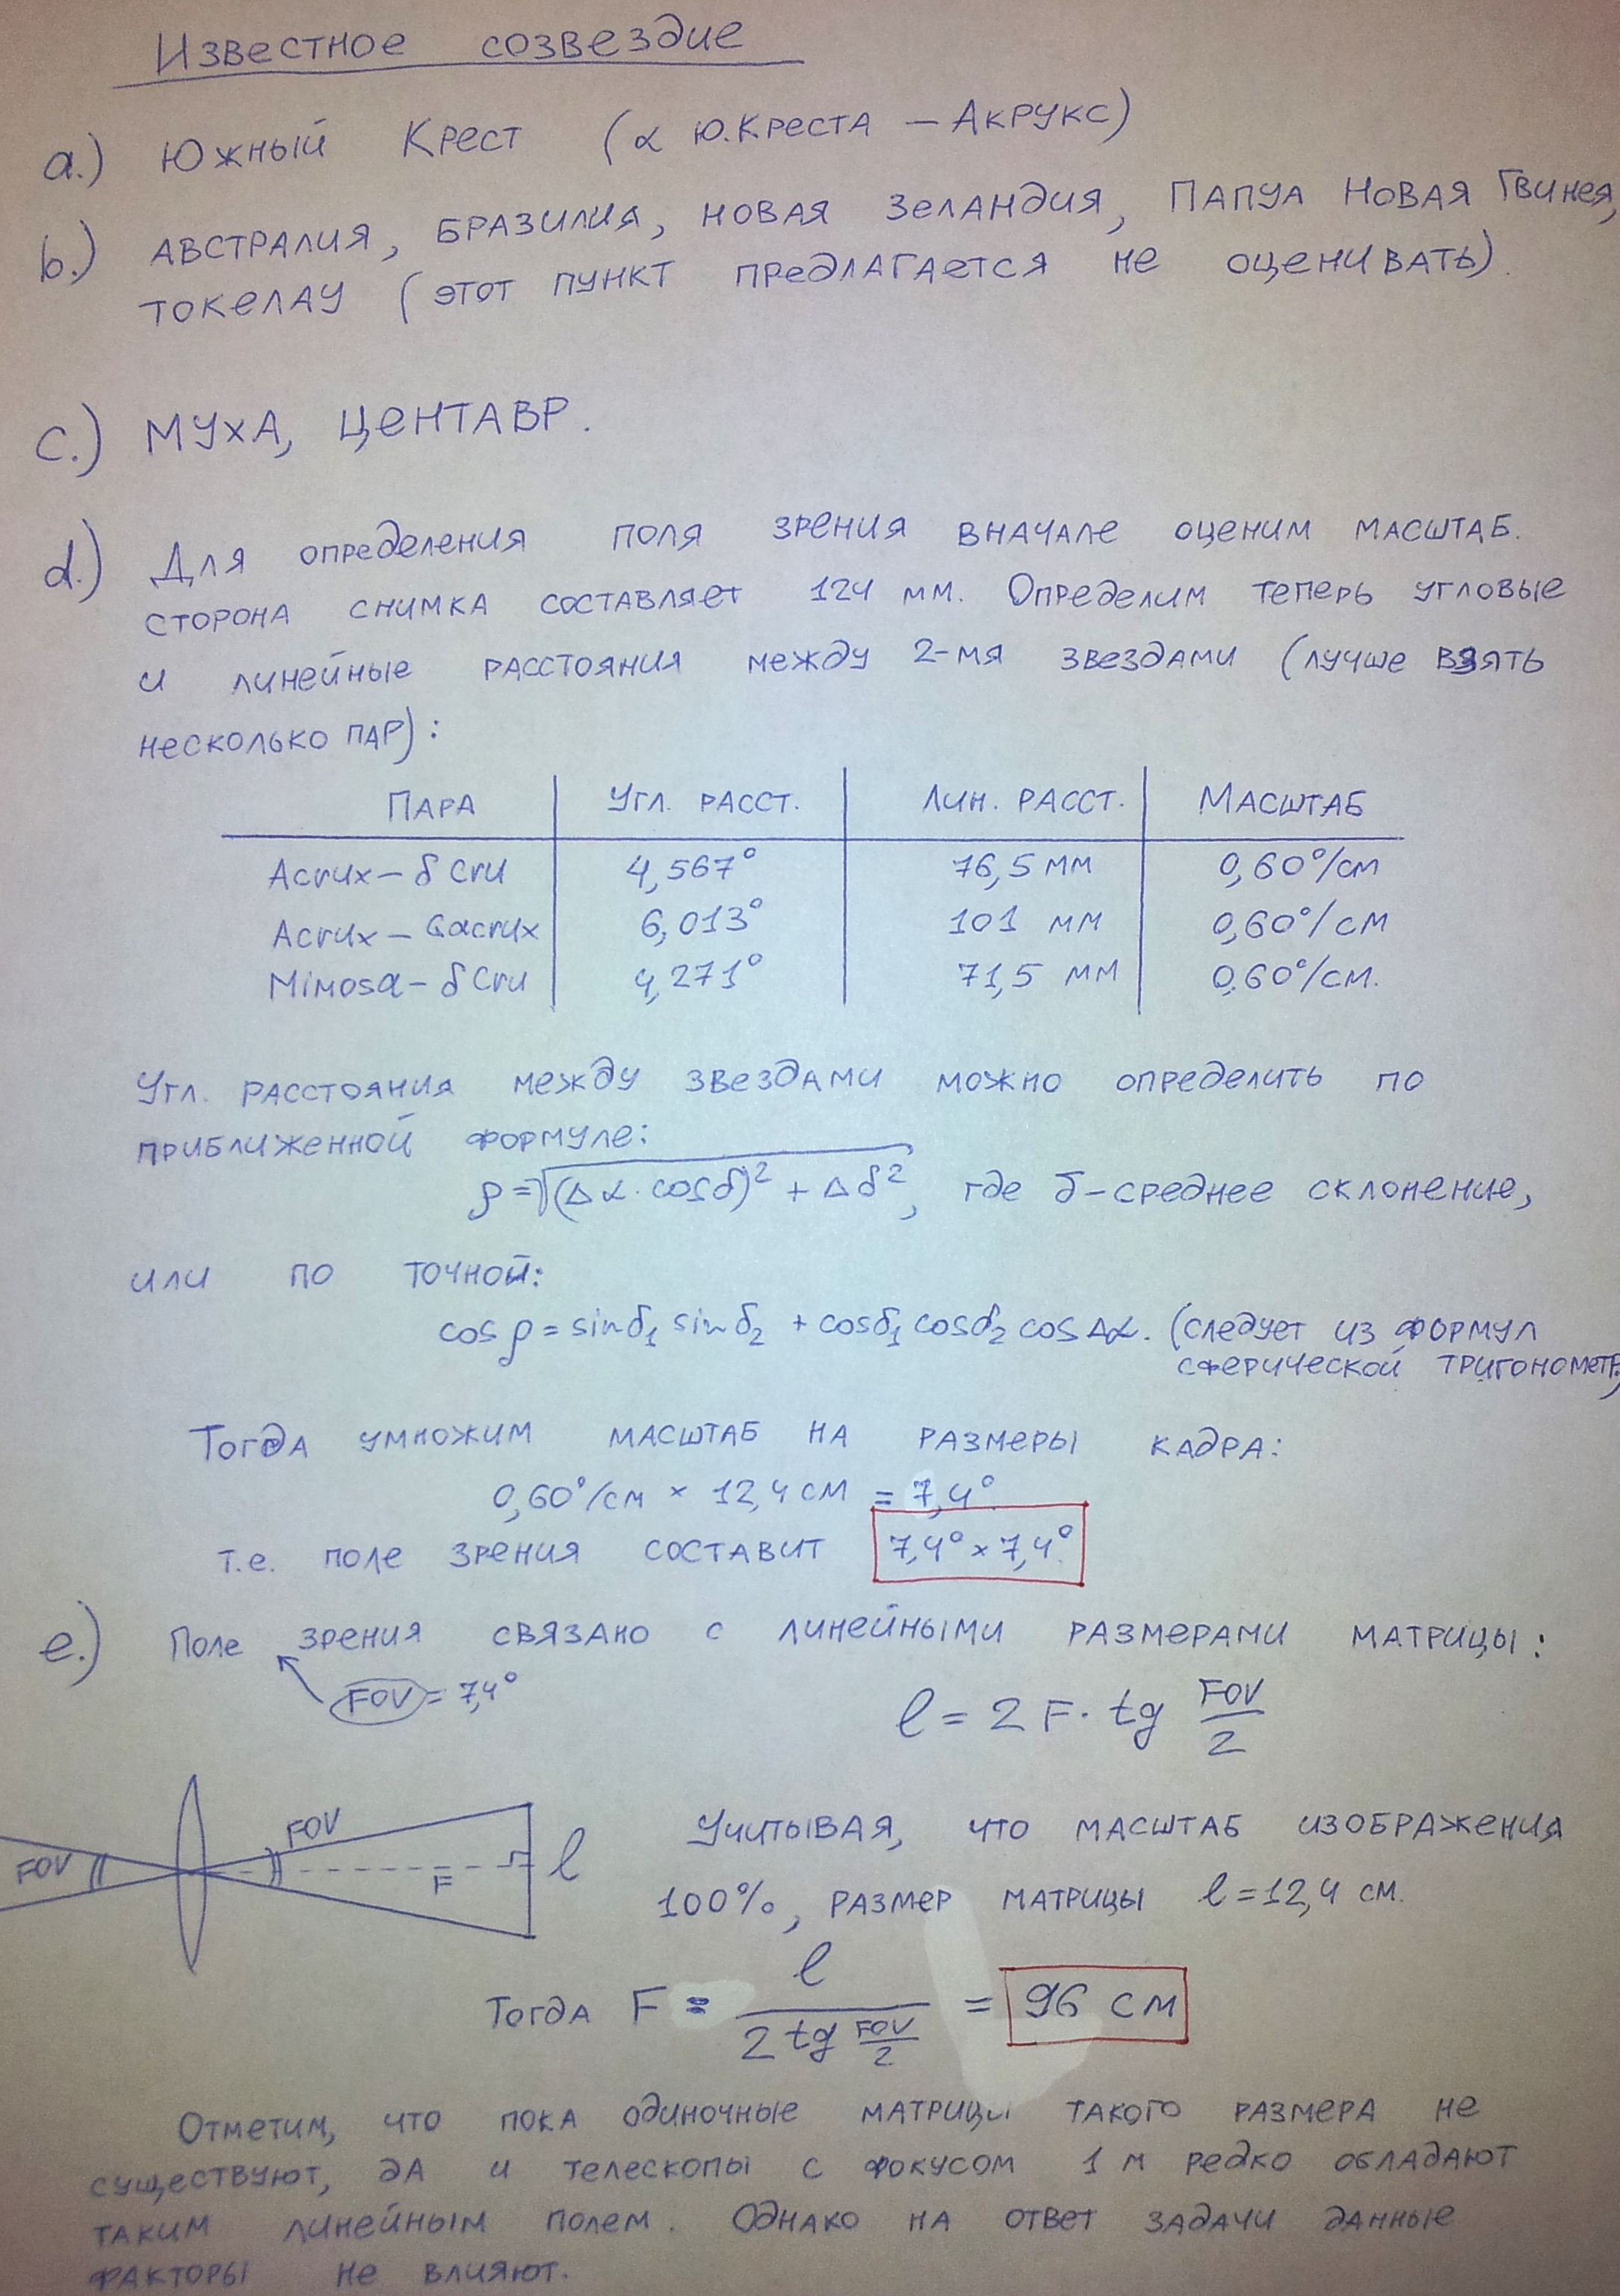 Известное созвездие
a.) Южный Крест (α Ю.Креста — Акрукс)
b.) Австралия, Бразилия, Новая Зеландия, Папуа Новая Гвинея,
Токелау (этот пункт предлагается не оценивать).
c.) Муха, Центавр.
d.) Для определения поля зрения вначале оценим масштаб.
Сторона снимка составляет 124 мм. Определим теперь угловые
и линейные расстояния между 2-мя звездами (лучше взять
несколько пар):
Пара Угл. расст. Лин. расст. Масштаб
Acrux – δ Cru 4,567° 76,5 мм 0,60°/см
Acrux – Gacrux 6,013° 101 мм 0,60°/см
Mimosa – δ Cru 4,271° 71,5 мм 0,60°/см.
Угл. расстояния между звездами можно определить по
приближенной формуле:
ρ = √((Δα·cosδ)² + Δδ²), где δ – среднее склонение,
или по точной:
cos ρ = sinδ₁ sinδ₂ + cosδ₁ cosδ₂ cosΔα. (следует из формул
сферической тригонометр.)
Тогда умножим масштаб на размеры кадра:
0,60°/см × 12,4 см = 7,4°
т.е. поле зрения составит 7,4° × 7,4°.
e.) Поле зрения связано с линейными размерами матрицы:
FOV = 7,4°
l = 2F · tg FOV/2
FOV
FOV
F
l
Учитывая, что масштаб изображения
100%, размер матрицы l = 12,4 см.
Тогда F = l / (2 tg FOV/2) = 96 см
Отметим, что пока одиночные матрицы такого размера не
существуют, да и телескопы с фокусом 1 м редко обладают
таким линейным полем. Однако на ответ задачи данные
факторы не влияют.